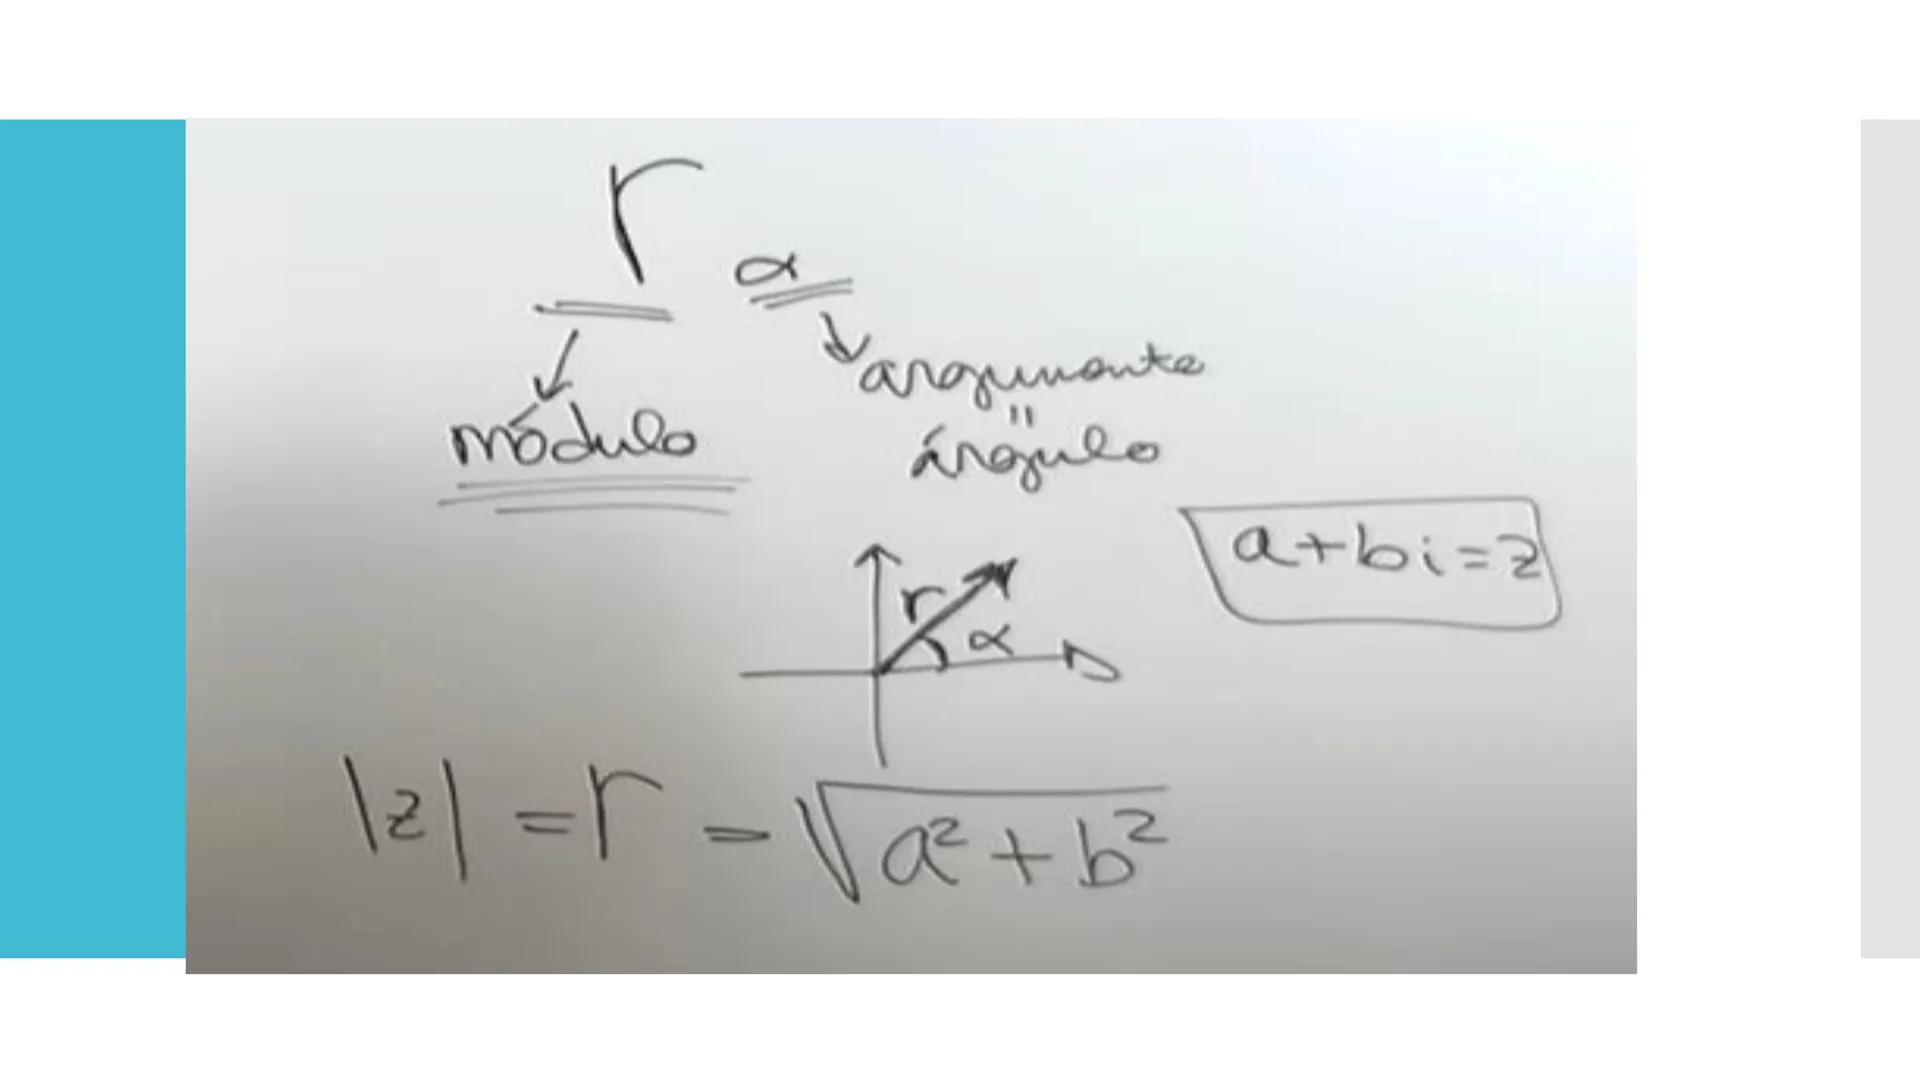 r α
módulo
argumento
"
ángulo
a+bi=z
r
α
|z| = r = √a²+b²